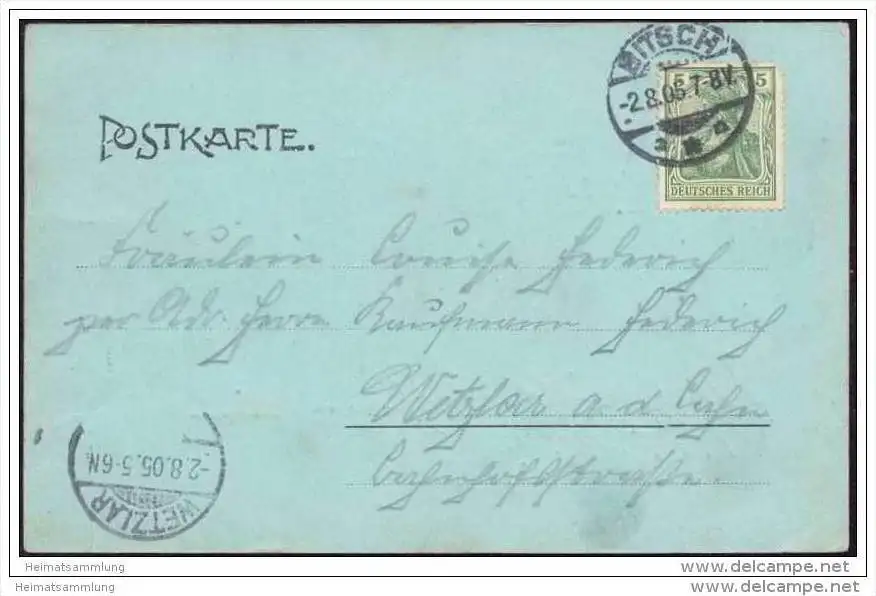 BITSCH
-2.8.05.7-8V.
5 5
DEUTSCHES REICH
POSTKARTE.
Fräulein Louise Hederich
per Adr. Herrn Kaufmann Hederich
Wetzlar a. d. Lahn
Bahnhofstraße.
-2.8.05.5-6N.
WETZLAR
Heimatsammlung
Heimatsammlung
www.delcampe.net
www.delcampe.net